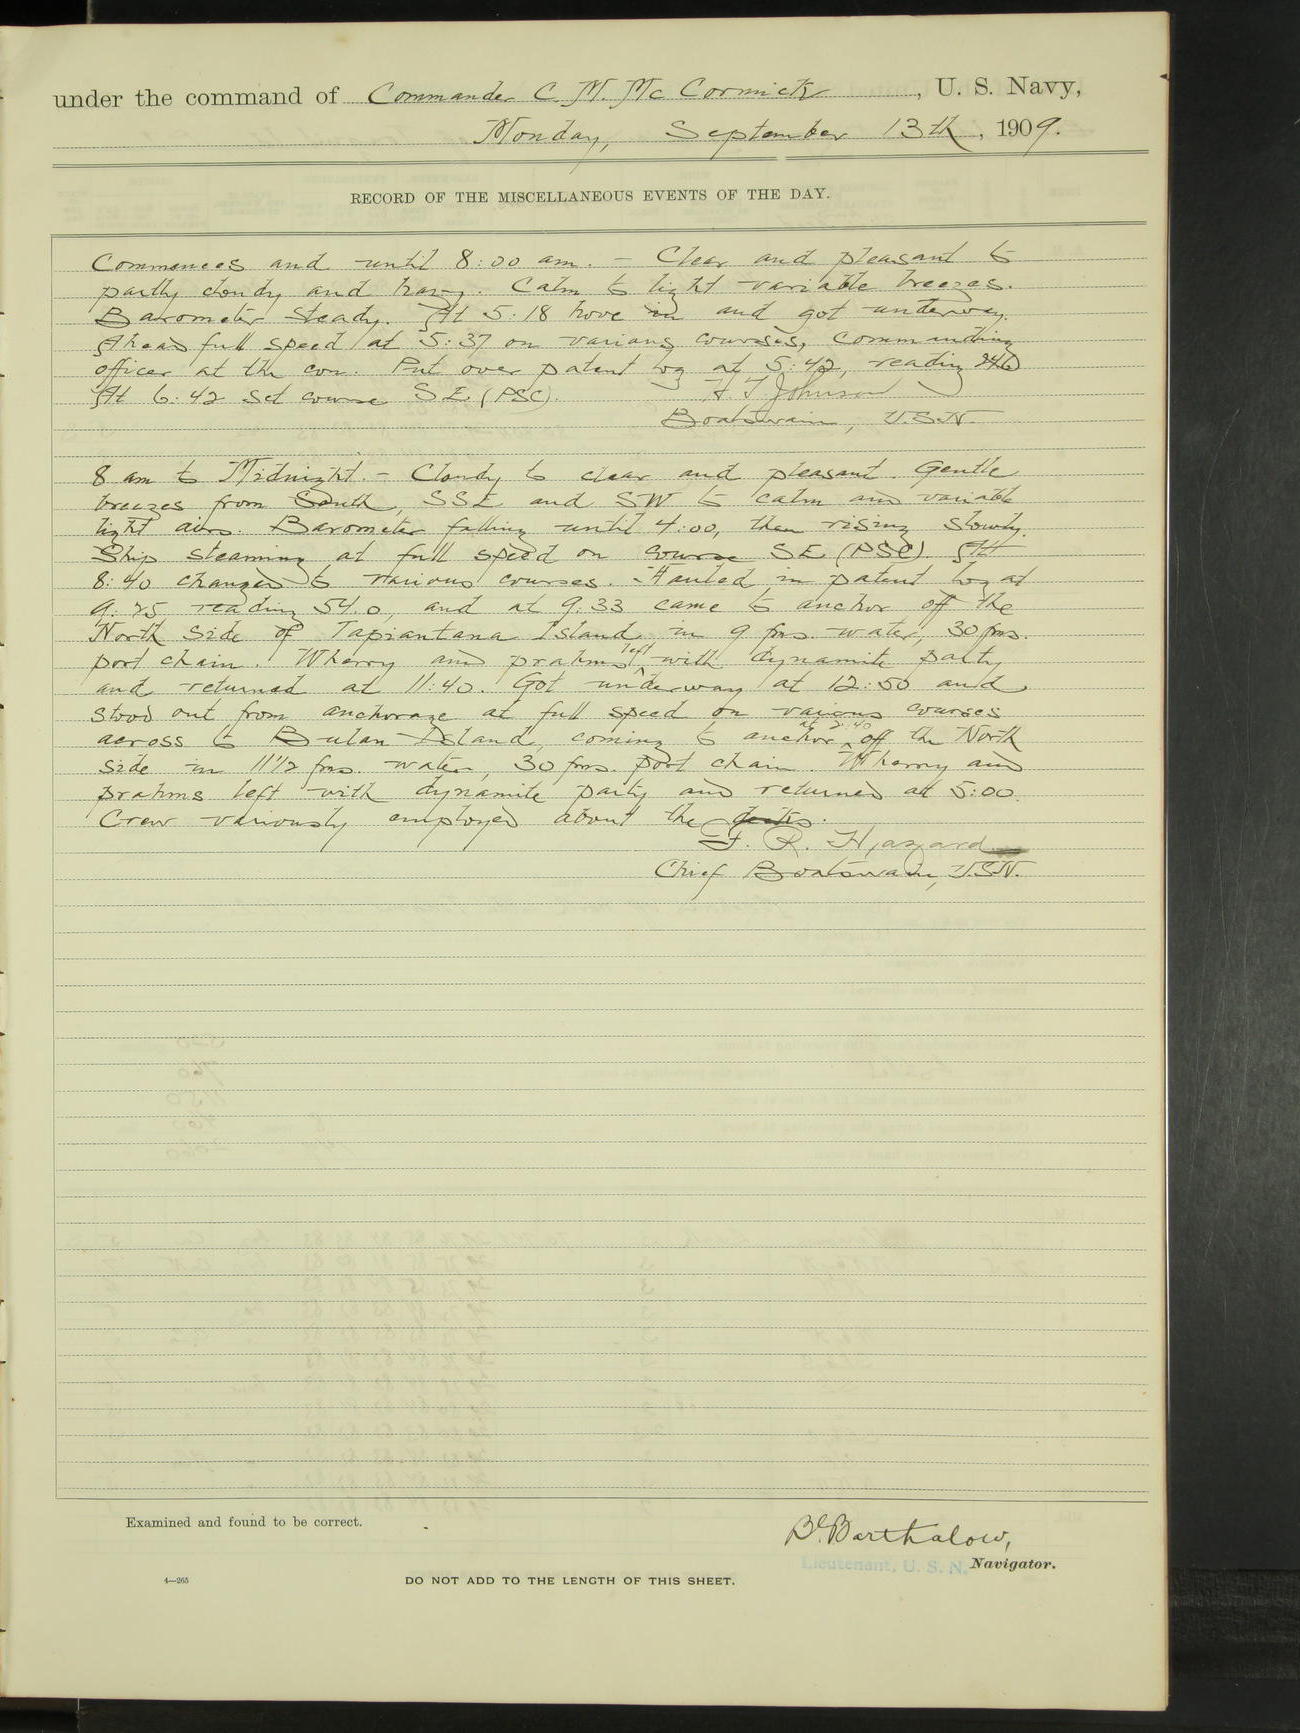 under the command of Commander C. M. McCormick, U. S. Navy,
Monday, September 13th, 1909.
RECORD OF THE MISCELLANEOUS EVENTS OF THE DAY.
Commences and until 8:00 am. – Clear and pleasant to
partly cloudy and hazy. Calm to light variable breezes.
Barometer steady. At 5:18 hove in and got underway.
Ahead full speed at 5:37 on various courses, Commanding
officer at the con. Put over patent log at 5:42, reading
At 6:42 set course SE (PSC). H. F. Johnson
Boatswain, U.S.N.
8 am to Midnight. – Cloudy to clear and pleasant. Gentle
breezes from South, SSE and SW to calm and variable
light airs. Barometer falling until 4:00, then rising slowly.
Ship steaming at full speed on course SE (PSC). At
8:40 changed to various courses. Hauled in patent log at
9:25 reading 54.0, and at 9:33 came to anchor off the
North side of Tapiantana Island in 9 fms. water, 30 fms.
port chain. Wherry and prahms left with dynamite party
and returned at 11:40. Got underway at 12:50 and
stood out from anchorage at full speed on various courses
across to Bulan Island, coming to anchor at 2:40 off the North
side in 11 1/2 fms. water, 30 fms. port chain. Wherry and
prahms left with dynamite party and returned at 5:00.
Crew variously employed about the decks.
F. R. Hazard
Chief Boatswain, U.S.N.
Examined and found to be correct.
Bartholow,
Lieutenant, U. S. N. Navigator.
4—265 DO NOT ADD TO THE LENGTH OF THIS SHEET.